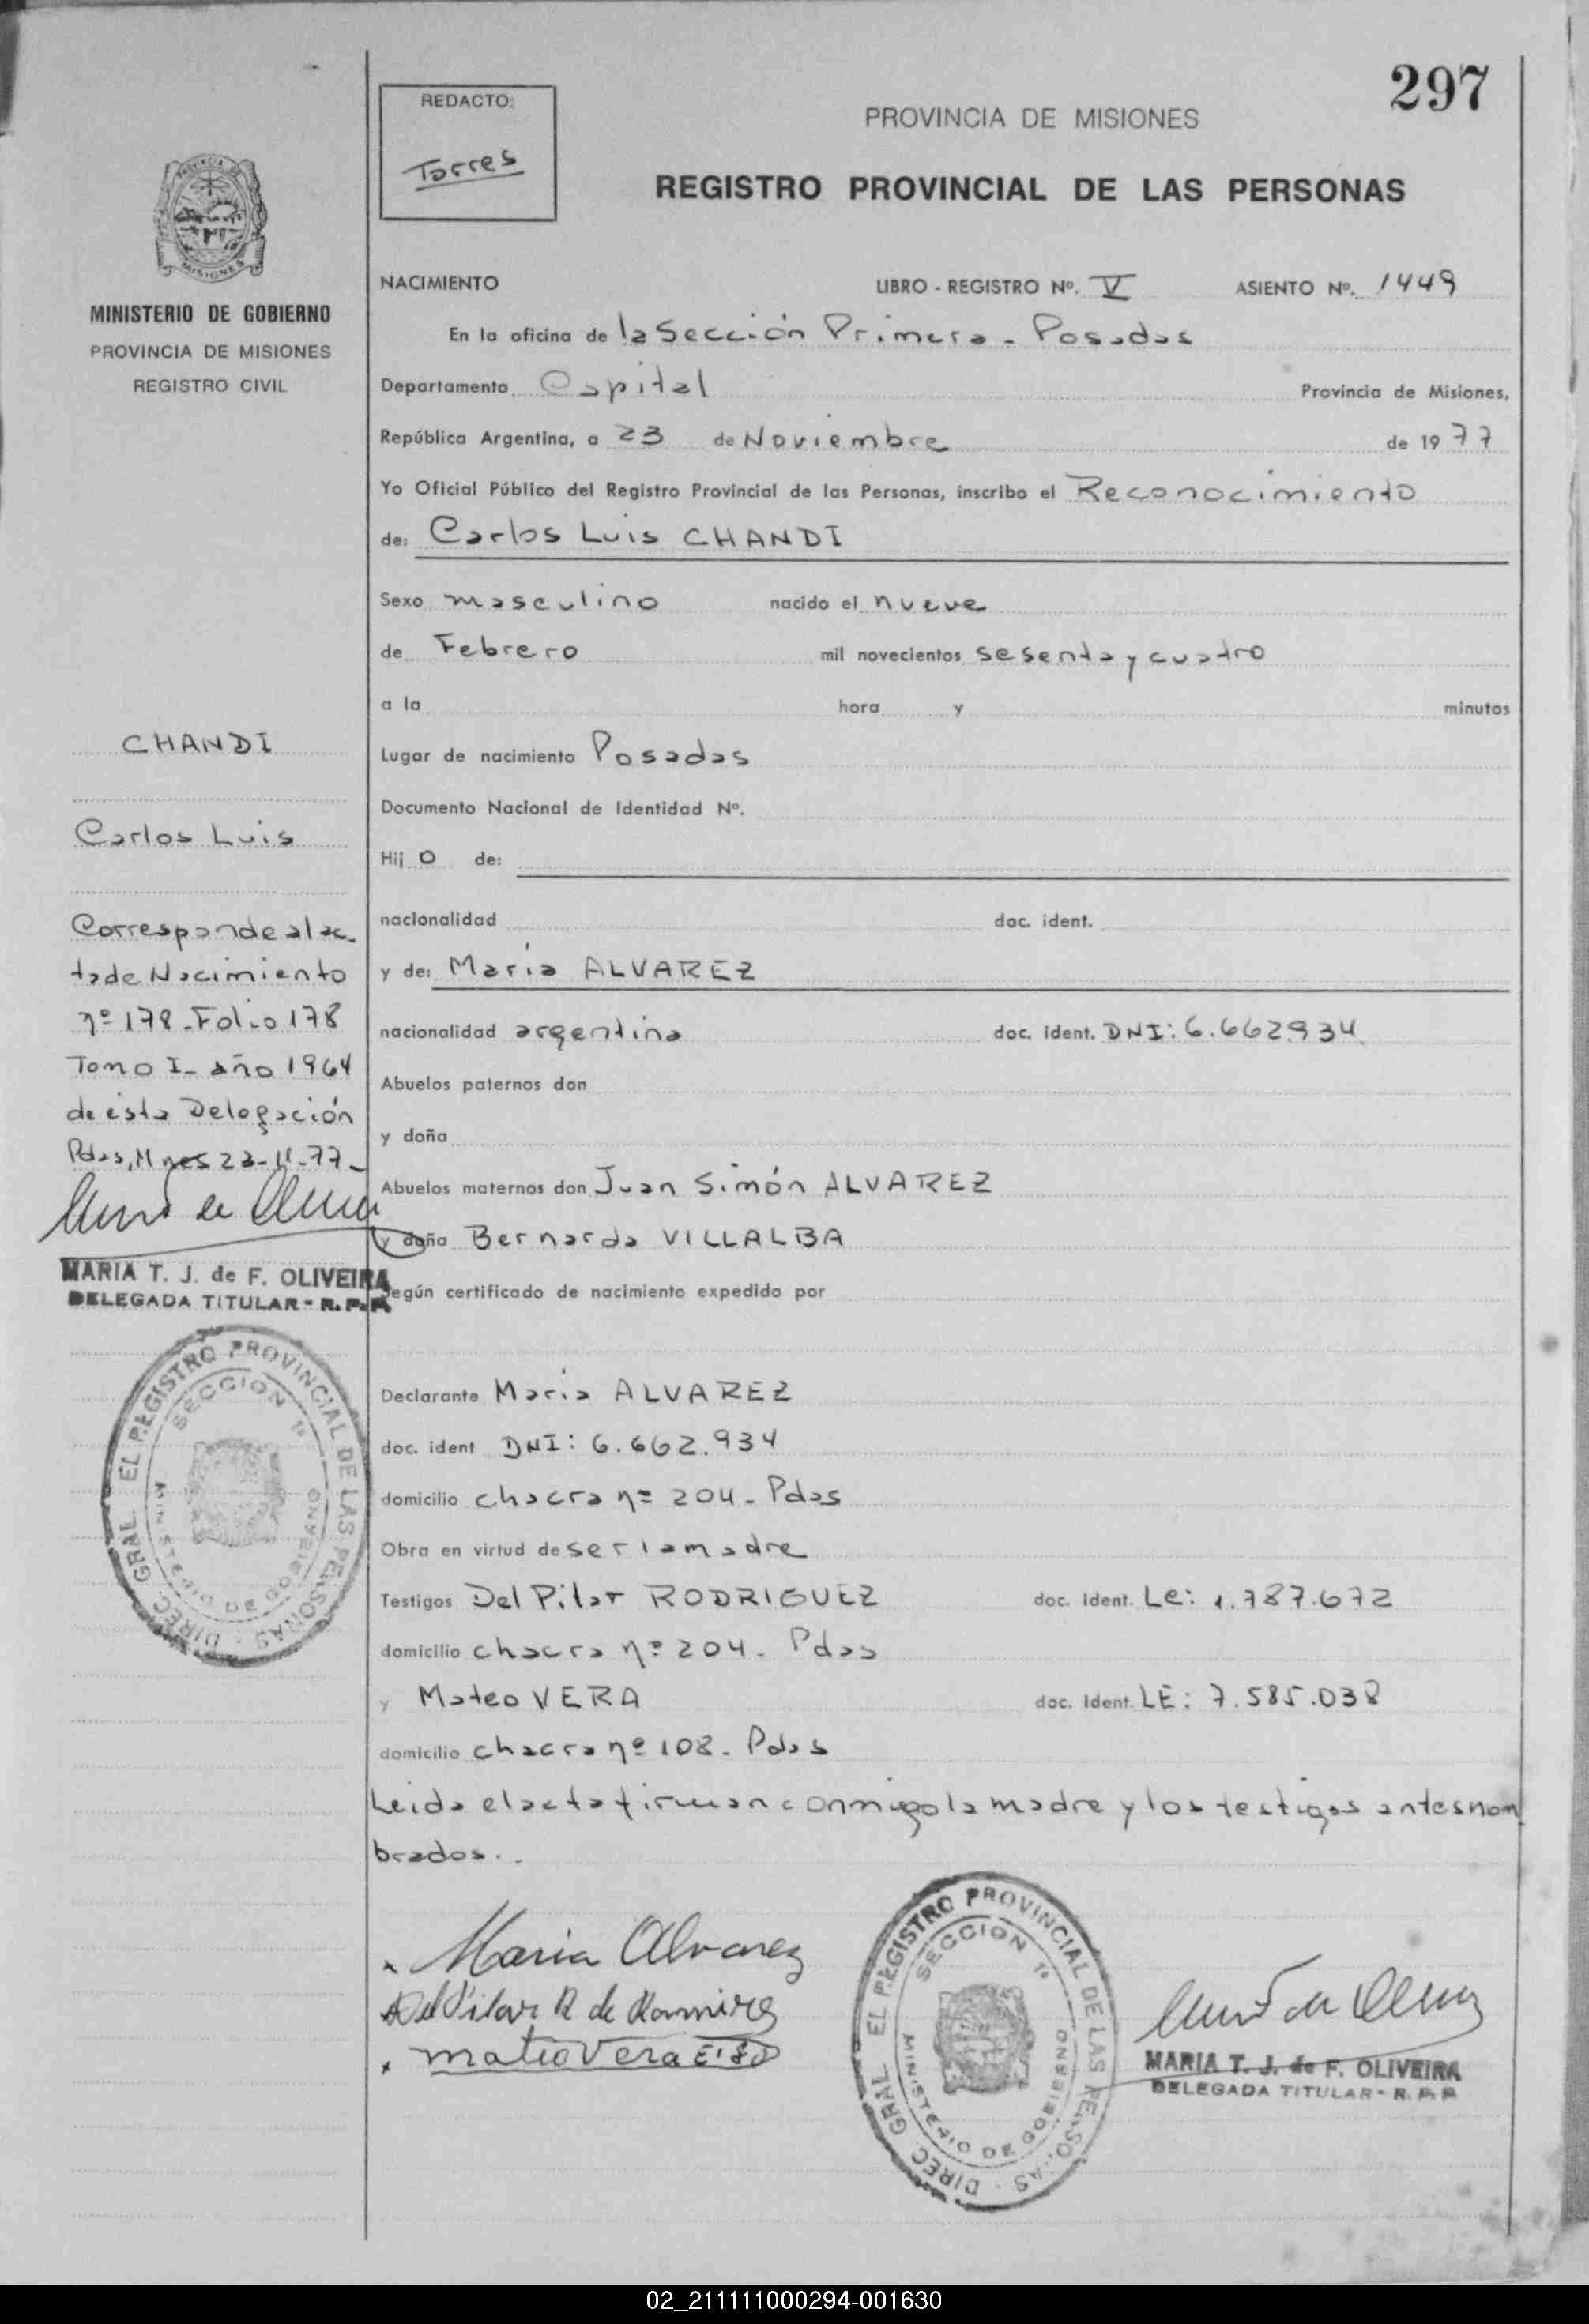 297
REDACTO:
Torres
PROVINCIA DE MISIONES
REGISTRO PROVINCIAL DE LAS PERSONAS
PROVINCIA DE
MISIONES
MINISTERIO DE GOBIERNO
PROVINCIA DE MISIONES
REGISTRO CIVIL
NACIMIENTO LIBRO - REGISTRO Nº. V ASIENTO Nº. 1449
En la oficina de la Sección Primera - Posadas
Departamento Capital Provincia de Misiones,
República Argentina, a 23 de Noviembre de 1977
Yo Oficial Público del Registro Provincial de las Personas, inscribo el Reconocimiento
de: Carlos Luis CHANDI
Sexo masculino nacido el nueve
de Febrero mil novecientos sesenta y cuatro
a la hora y minutos
Lugar de nacimiento Posadas
Documento Nacional de Identidad Nº.
Hij o de:
nacionalidad doc. ident.
y de: Maria ALVAREZ
nacionalidad argentina doc. ident. DNI: 6.662.934
Abuelos paternos don
y doña
Abuelos maternos don Juan Simón ALVAREZ
y doña Bernarda VILLALBA
según certificado de nacimiento expedido por
Declarante Maria ALVAREZ
doc. ident DNI: 6.662.934
domicilio chacra nº 204 - Pdas
Obra en virtud de ser la madre
Testigos Del Pilar RODRIGUEZ doc. ident. Le: 1.787.672
domicilio chacra nº 204 - Pdas
y Mateo VERA doc. ident. LE: 7.585.038
domicilio chacra nº 108 - Pdas
Leida el acta firman conmigo la madre y los testigos antes nom
brados..
CHANDI
Carlos Luis
Corresponde al ac-
ta de Nacimiento
nº 178 - Folio 178
Tomo I - año 1964
de ésta Delegación
Pdas, Mnes 23-11-77-
MARIA T. J. de F. OLIVEIRA
DELEGADA TITULAR - R. P. P.
DIREC. GRAL EL REGISTRO PROVINCIAL DE LAS PERSONAS
SECCION 1ª
MINISTERIO DE GOBIERNO
Maria Alvarez
Del Pilar R de Ramirez
mateo Vera
DIREC. GRAL EL REGISTRO PROVINCIAL DE LAS PERSONAS
SECCION 1ª
MINISTERIO DE GOBIERNO
MARIA T. J. de F. OLIVEIRA
DELEGADA TITULAR - R. P. P
02_211111000294-001630